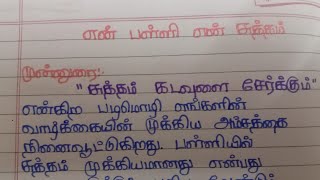 என் பள்ளி என் சுத்தம்
முன்னுரை:-
"சுத்தம் கடவுளை சேர்க்கும்"
என்கிற பழமொழி எங்களின்
வாழ்க்கையின் முக்கிய அம்சத்தை
நினைவூட்டுகிறது. பள்ளியில்
சுத்தம் முக்கியமானது என்பது